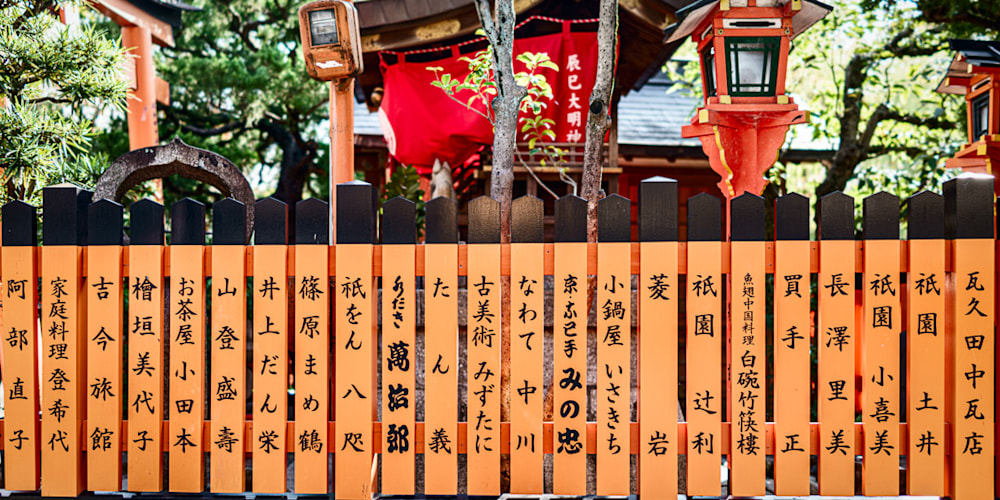 辰巳大明神
瓦久田中瓦店
祇園 土井
祇園 小喜美
長澤里美
買手 正
魚翅中国料理 白碗竹筷樓
祇園 辻利
菱岩
小鍋屋いさきち
みの忠
なわて中川
古美術みずたに
たん義
萬治郎
祇をん八咫
篠原まめ鶴
井上だん栄
山登盛壽
お茶屋小田本
檜垣美代子
吉今旅館
家庭料理登希代
阿部直子